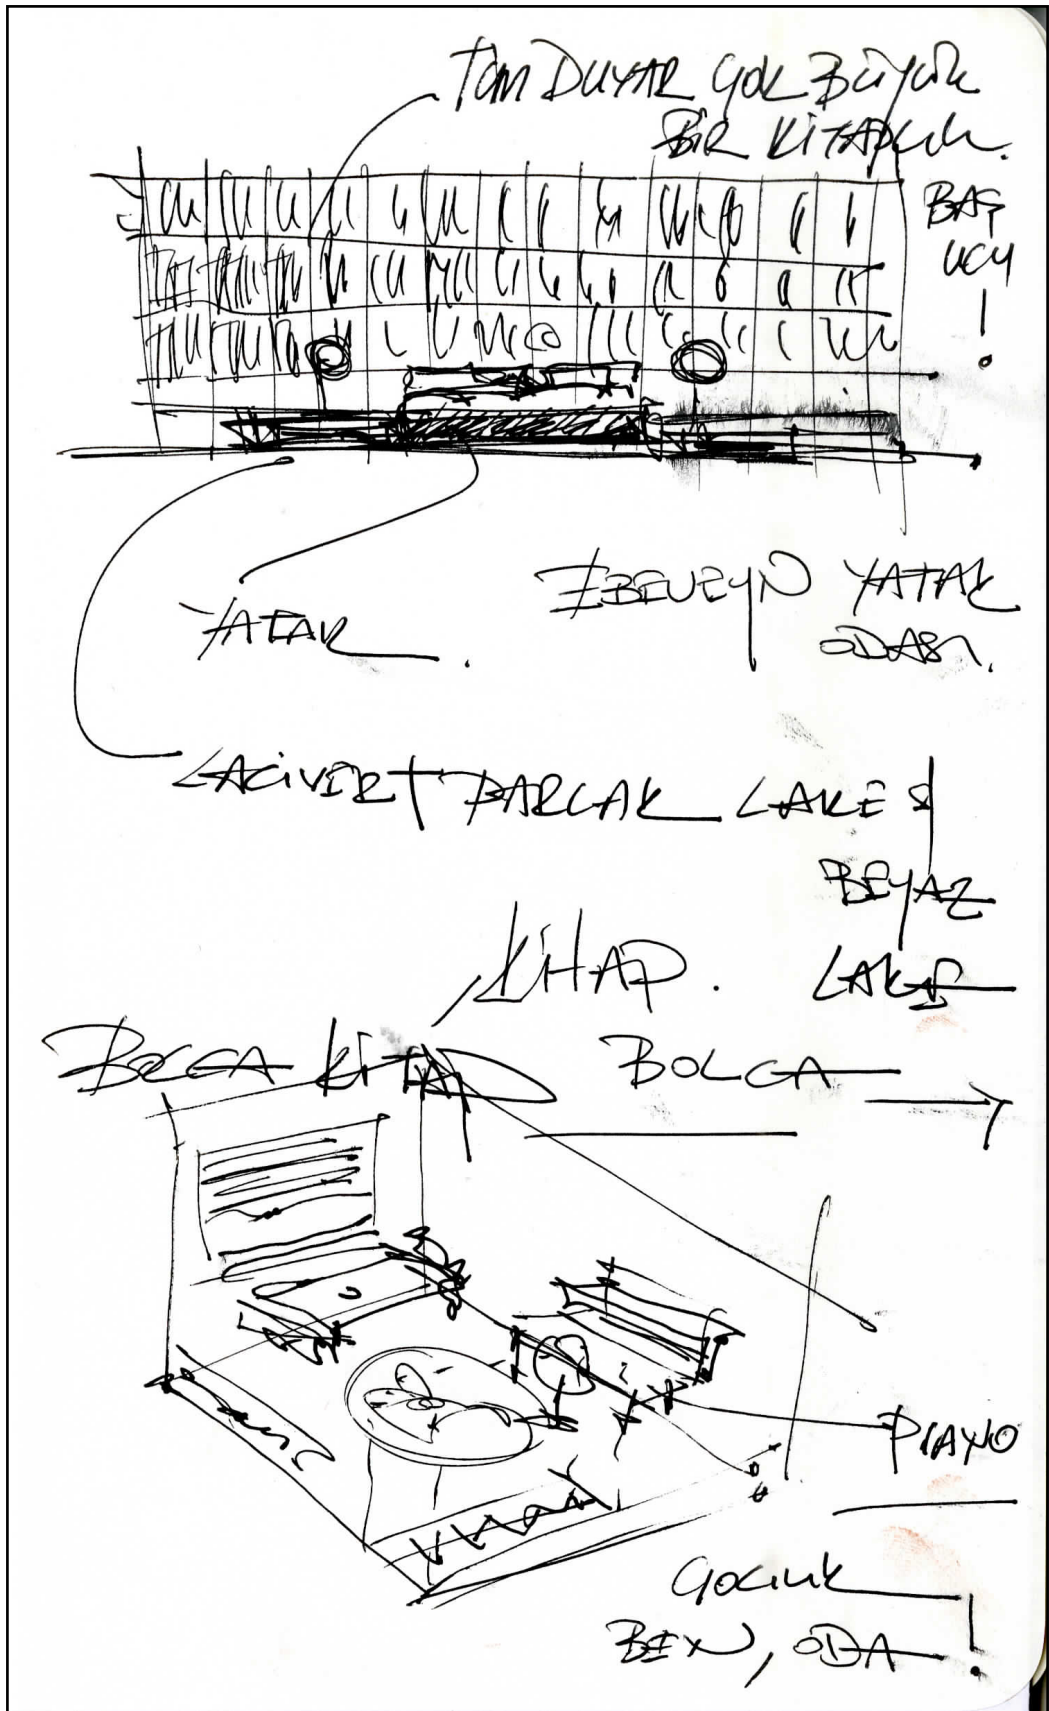 TÜM DUVAR ÇOK BÜYÜK
BİR KİTAPLIK.
BAŞ
UCU
!
YATAK.
EBEVEYN YATAK
ODASI.
LACİVERT PARLAK LAKE &
BEYAZ
LAKE
KİTAP.
BOLCA KİTAP
BOLCA
PIANO
ÇOCUK
BEN, ODA!